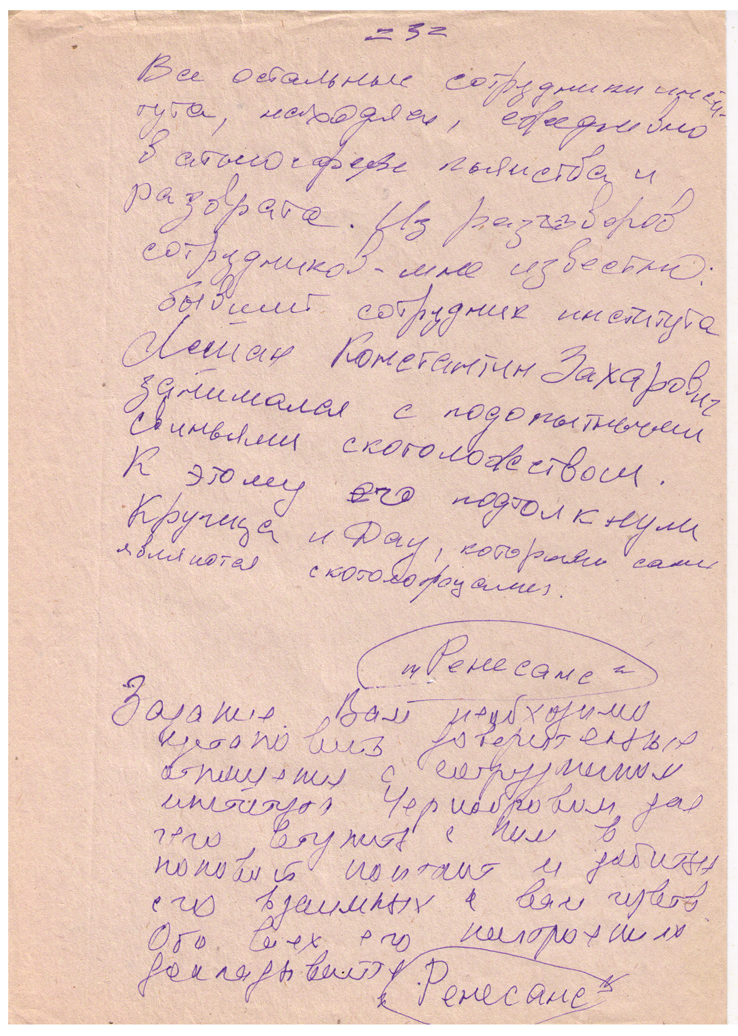 = 3 =
Все остальные сотрудники инсти-
тута, находясь, ежедневно
в атмосфере пьянства и
разврата. Из разговоров
сотрудников - мне известно:
бывший сотрудник института
Константин Захарович
занимался с подопытными
свиньями скотоложством.
К этому его подтолкнули
Кручица и Дау, которые сами
являются скотоложцами.
"Ренесанс"
Задание. Вам необходимо
установить доверительные
отношения с сотрудником
института Чернобровым для
чего вступить с ним в
половой контакт и добиться
его взаимных к вам чувств
Обо всех его настроениях
докладывайте
"Ренесанс"